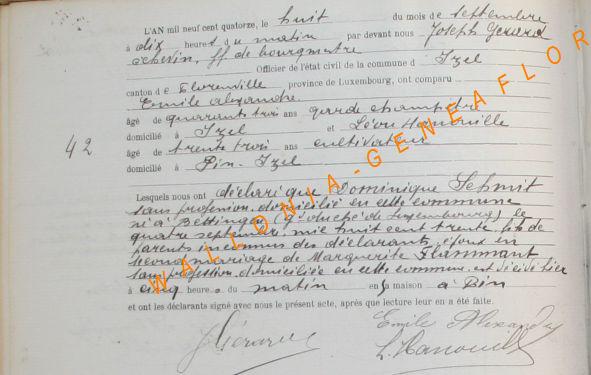 L'AN mil neuf cent quatorze, le huit du mois de septembre
à dix heures du matin par devant nous Joseph Gérard
échevin, ff de bourgmestre
Officier de l'état civil de la commune d Izel
canton de Florenville province de Luxembourg, ont comparu
Emile Alexandre
âgé de quarante trois ans garde champêtre
domicilié à Izel et Léon Hanouille
âgé de trente trois ans cultivateur
domicilié à Pin-Izel
42
Lesquels nous ont déclaré que Dominique Schmit
sans profession, domicilié en cette commune
né à Bettingen (gd duché de Luxembourg) le
quatre septembre mil huit cent trente, fils de
parents inconnus des déclarants, époux en
second mariage de Marguerite Flammant
sans profession, domiciliée en cette commune est décédé hier
à cinq heures du matin en sa maison à Pin
et ont les déclarants signé avec nous le présent acte, après que lecture leur en a été faite.
JGérard
Emile Alexandre
L. Hanouille
WALLONIA-GENEAFLOR